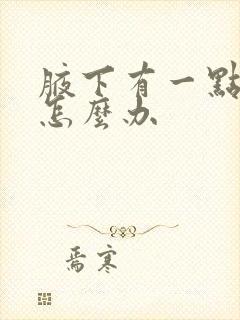 腋下有一點
怎麼办
焉寒